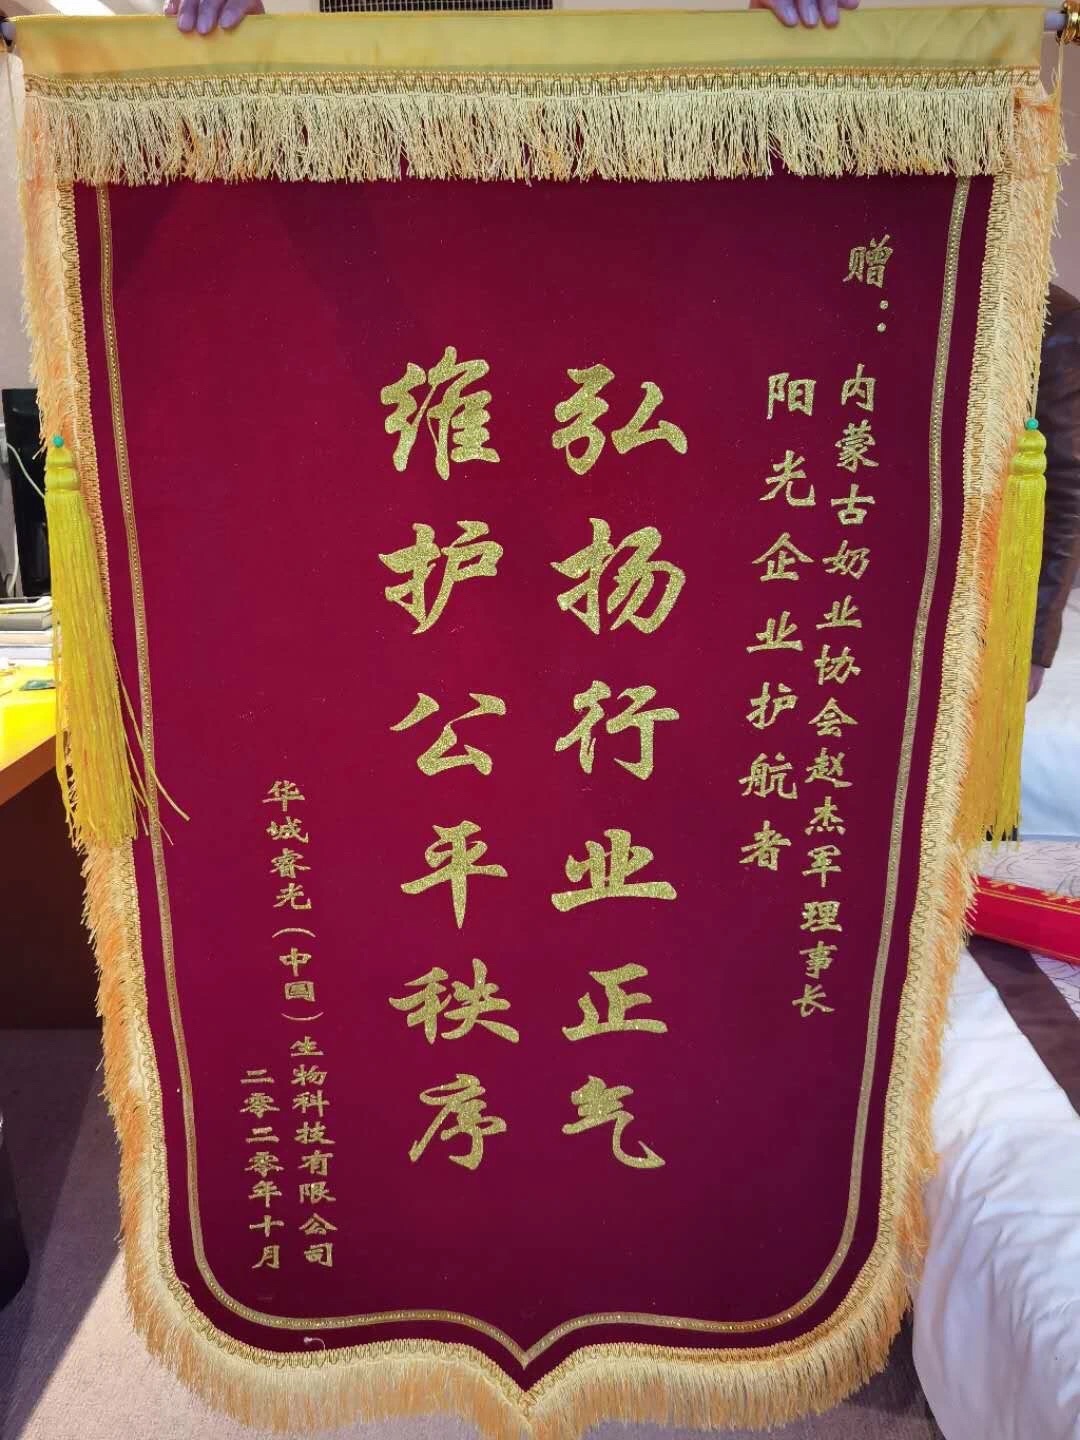 赠：
内蒙古奶业协会赵杰军理事长
阳光企业护航者
弘扬行业正气
维护公平秩序
华城睿光（中国）生物科技有限公司
二零二零年十月